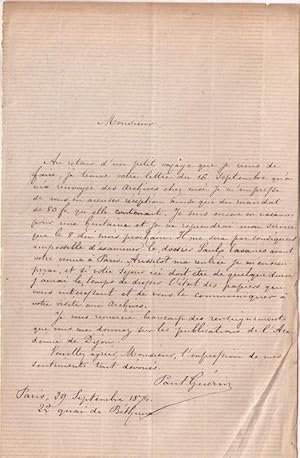 Monsieur
Au retour d'un petit voyage que je viens de
faire, je trouve votre lettre du 16 septembre qu'on
m'a renvoyée des Archives chez moi. Je m'empresse
de vous en accuser réception ainsi que du mandat
de 80 fr. qu'elle contenait. Je suis encore en vacances
pour une quinzaine et je ne reprendrai mon service
que le 8 du mois prochain. Il me sera par conséquent
impossible d'examiner le dossier Saulx Tavanes avant
votre venue à Paris. Aussitôt ma rentrée je m'en
et si votre séjour ici doit être de quelque durée,
j'aurai le temps de dresser l'état des papiers qui
vous intéressent et de vous le communiquer à
votre visite aux Archives.
Je vous remercie beaucoup des renseignements
que vous me donnez sur les publications de l'Aca-
démie de Dijon.
Veuillez agréer, Monsieur, l'expression de mes
sentiments tout dévoués.
Paul Guérin
Paris, 29 Septembre 1874.
22 quai de Béthune